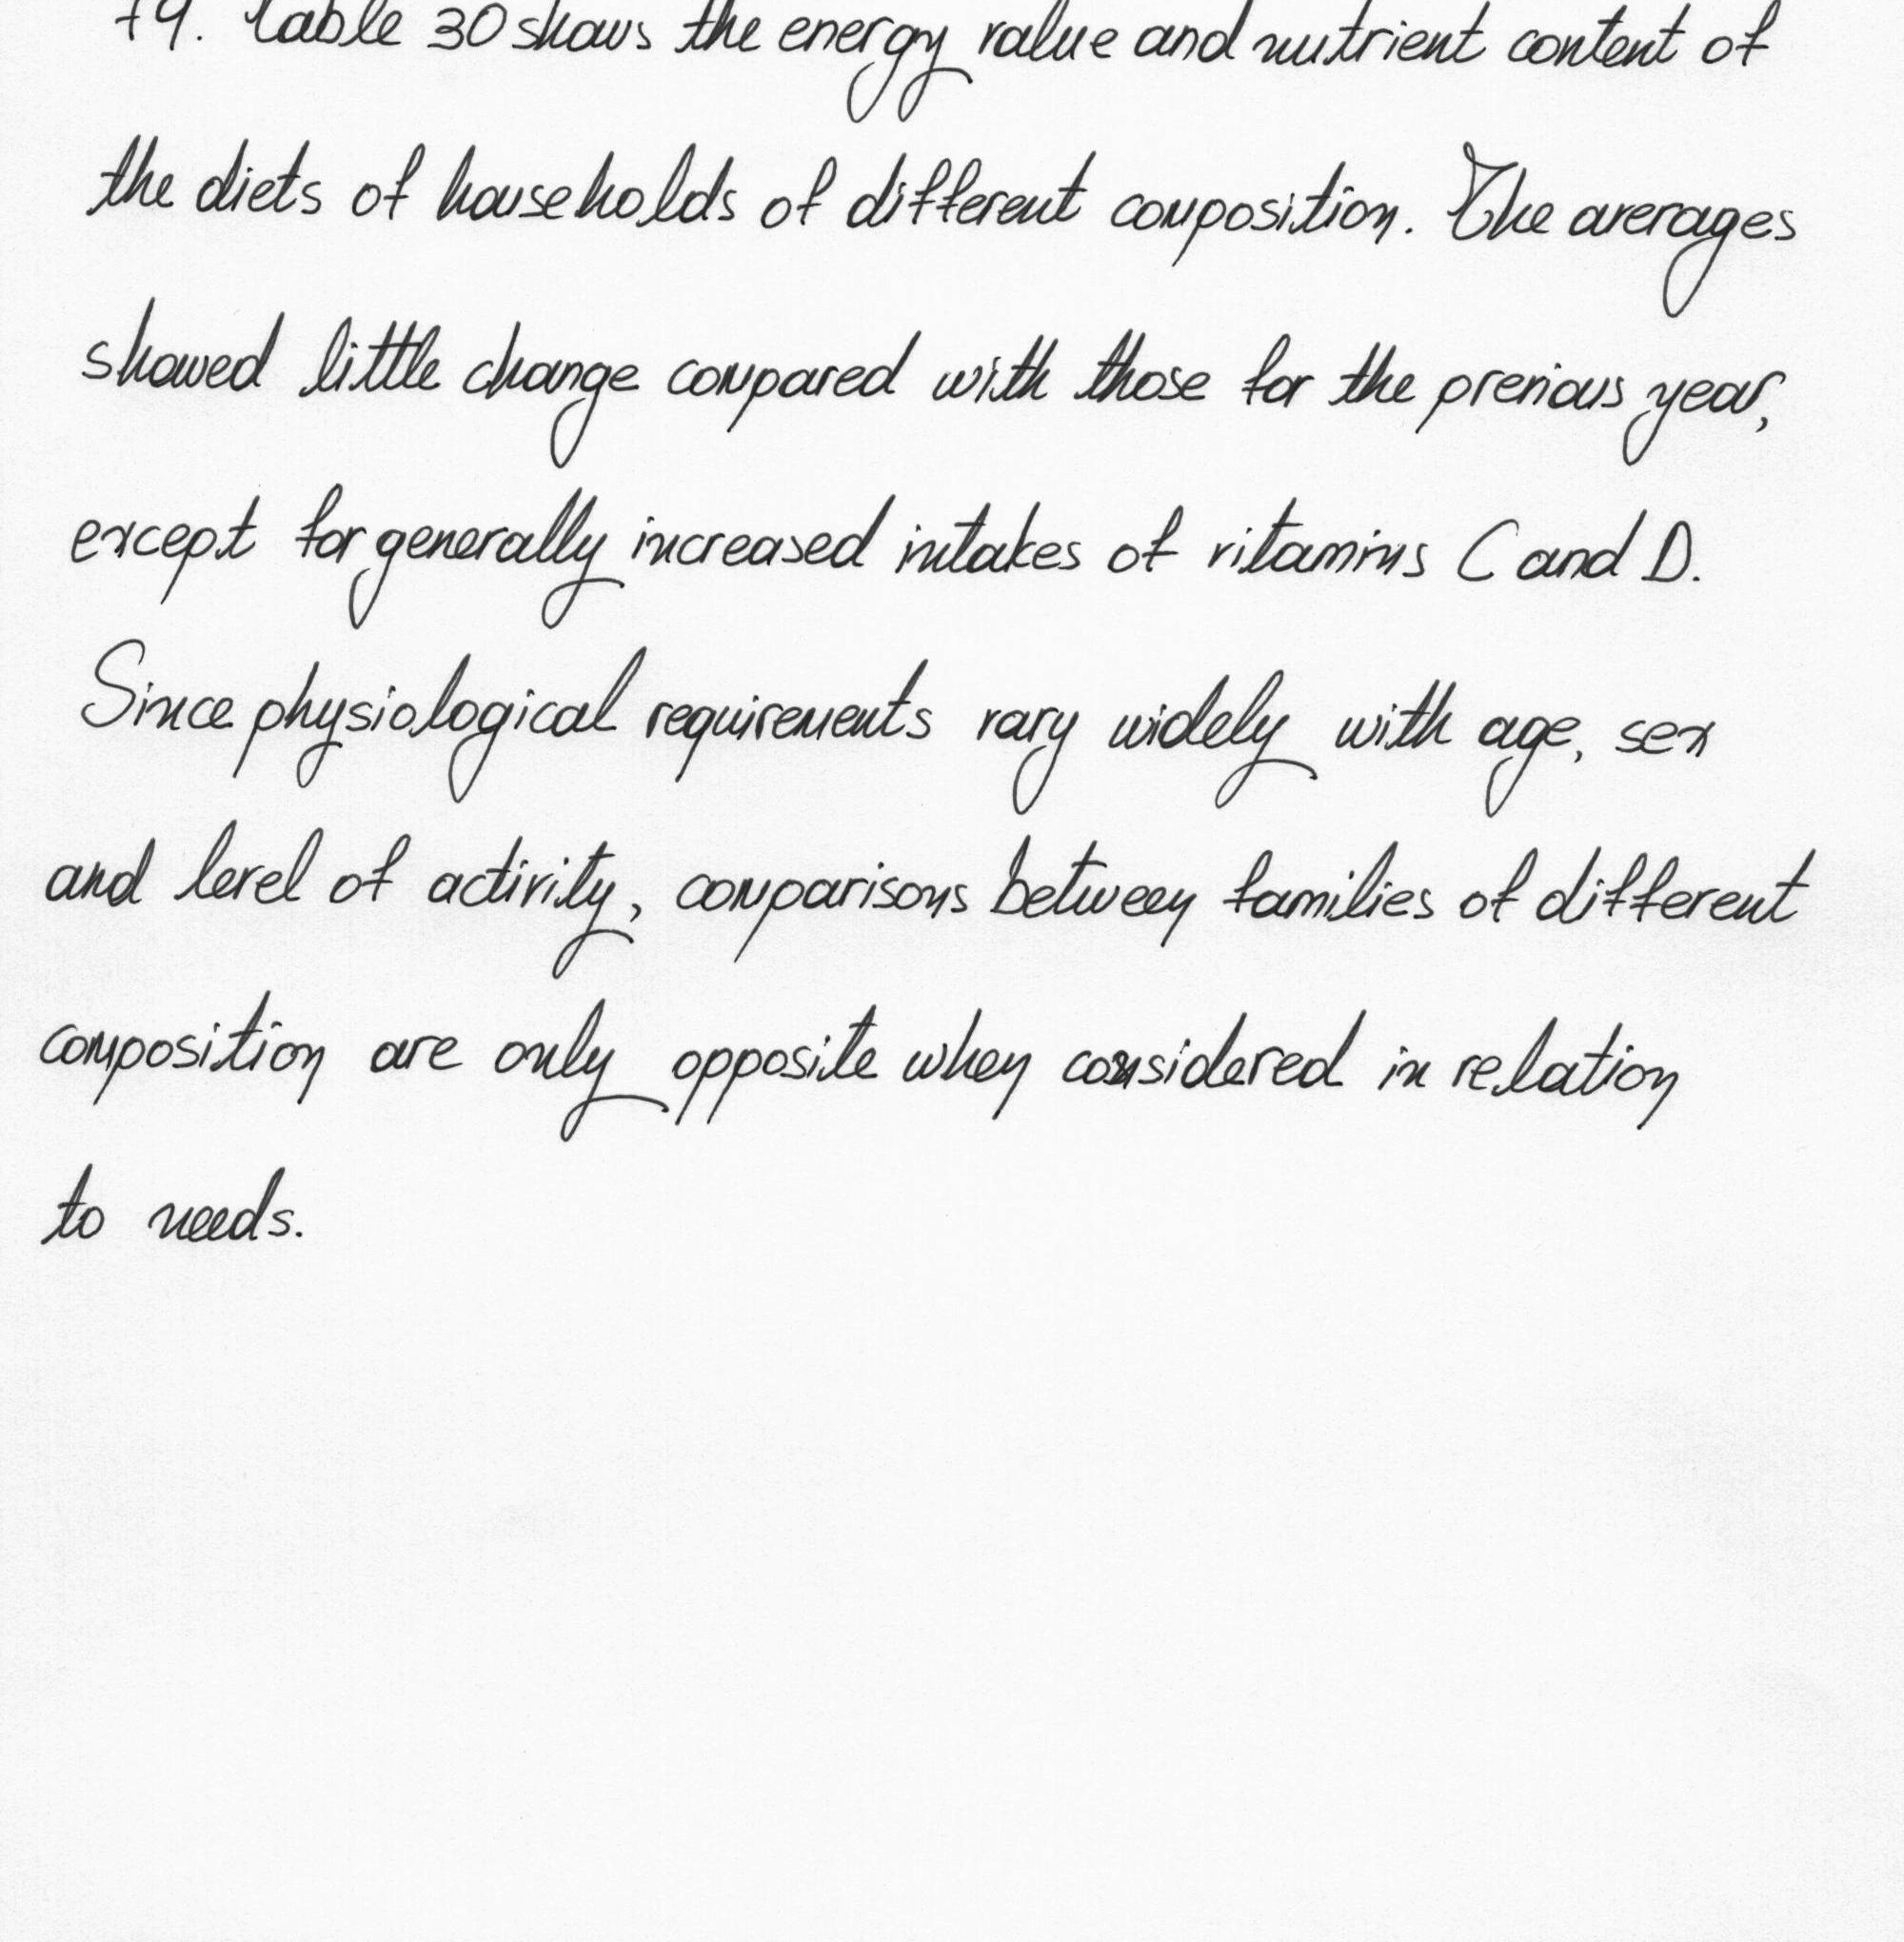 79. Table 30 shows the energy value and nutrient content of
the diets of households of different composition. The averages
showed little change compared with those for the previous year,
except for generally increased intakes of vitamins C and D.
Since physiological requirements vary widely with age, sex
and level of activity, comparisons between families of different
composition are only opposite when considered in relation
to needs.